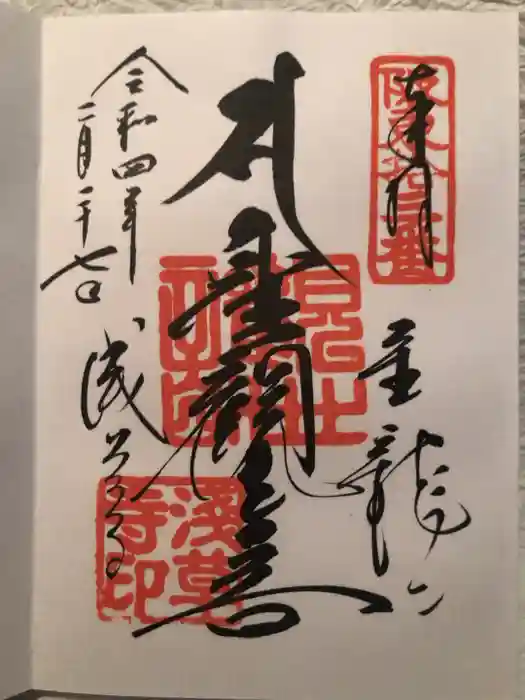 奉拝
坂東拾三番
金龍山
聖観世音
浅草寺
令和四年
二月二十七日
浅草寺印